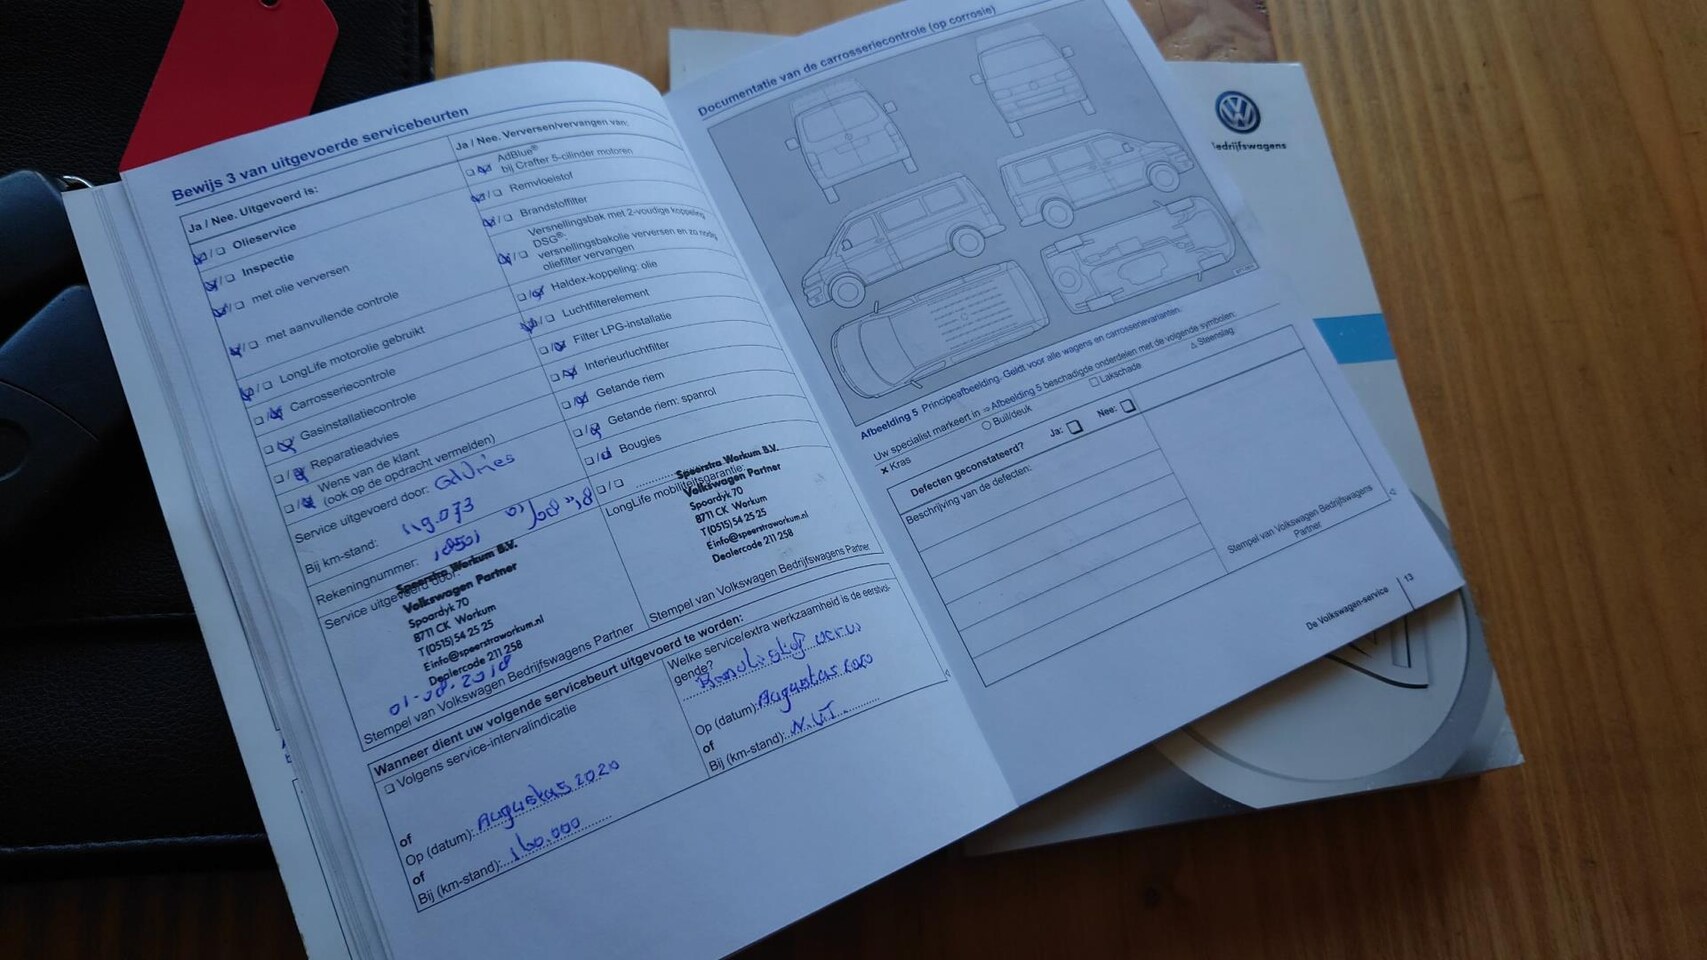 Bewijs 3 van uitgevoerde servicebeurten
Ja / Nee. Uitgevoerd is:
Olieservice
Inspectie
met olie verversen
met aanvullende controle
LongLife motorolie gebruikt
Carrosseriecontrole
Gasinstallatiecontrole
Reparatieadvies
Wens van de klant
(ook op de opdracht vermelden)
Service uitgevoerd door: GdVries
Bij km-stand: 119.073
Rekeningnummer: 18501
Service uitgevoerd door:
Speerstra Workum B.V.
Volkswagen Partner
Spoardyk 70
8711 CK Workum
T(0515) 54 25 25
Einfo@speerstraworkum.nl
Dealercode 211 258
01-08-2018
Stempel van Volkswagen Bedrijfswagens Partner
Ja / Nee. Verversen/vervangen van:
AdBlue®
bij Crafter 5-cilinder motoren
Remvloeistof
Brandstoffilter
Versnellingsbak met 2-voudige koppeling
DSG®:
versnellingsbakolie verversen en zo nodig
oliefilter vervangen
Haldex-koppeling: olie
Luchtfilterelement
Filter LPG-installatie
Interieurluchtfilter
Getande riem
Getande riem: spanrol
Bougies
LongLife mobiliteitsgarantie:
Speerstra Workum B.V.
Volkswagen Partner
Spoardyk 70
8711 CK Workum
T(0515) 54 25 25
Einfo@speerstraworkum.nl
Dealercode 211 258
Stempel van Volkswagen Bedrijfswagens Partner
Wanneer dient uw volgende servicebeurt uitgevoerd te worden:
Volgens service-intervalindicatie
of
Op (datum): Augustus 2020
of
Bij (km-stand): 160.000
Welke service/extra werkzaamheid is de eerstvol-
gende?
Op (datum): Augustus 2020
of
Bij (km-stand): N.V.T.
Documentatie van de carrosseriecontrole (op corrosie)
Afbeelding 5 Principeafbeelding. Geldt voor alle wagens en carrosserievarianten.
Uw specialist markeert in ⇒ Afbeelding 5 beschadigde onderdelen met de volgende symbolen:
× Kras
○ Buil/deuk
□ Lakschade
△ Steenslag
Defecten geconstateerd? Ja: Nee:
Beschrijving van de defecten:
Stempel van Volkswagen Bedrijfswagens
Partner
De Volkswagen-service 13
Bedrijfswagens